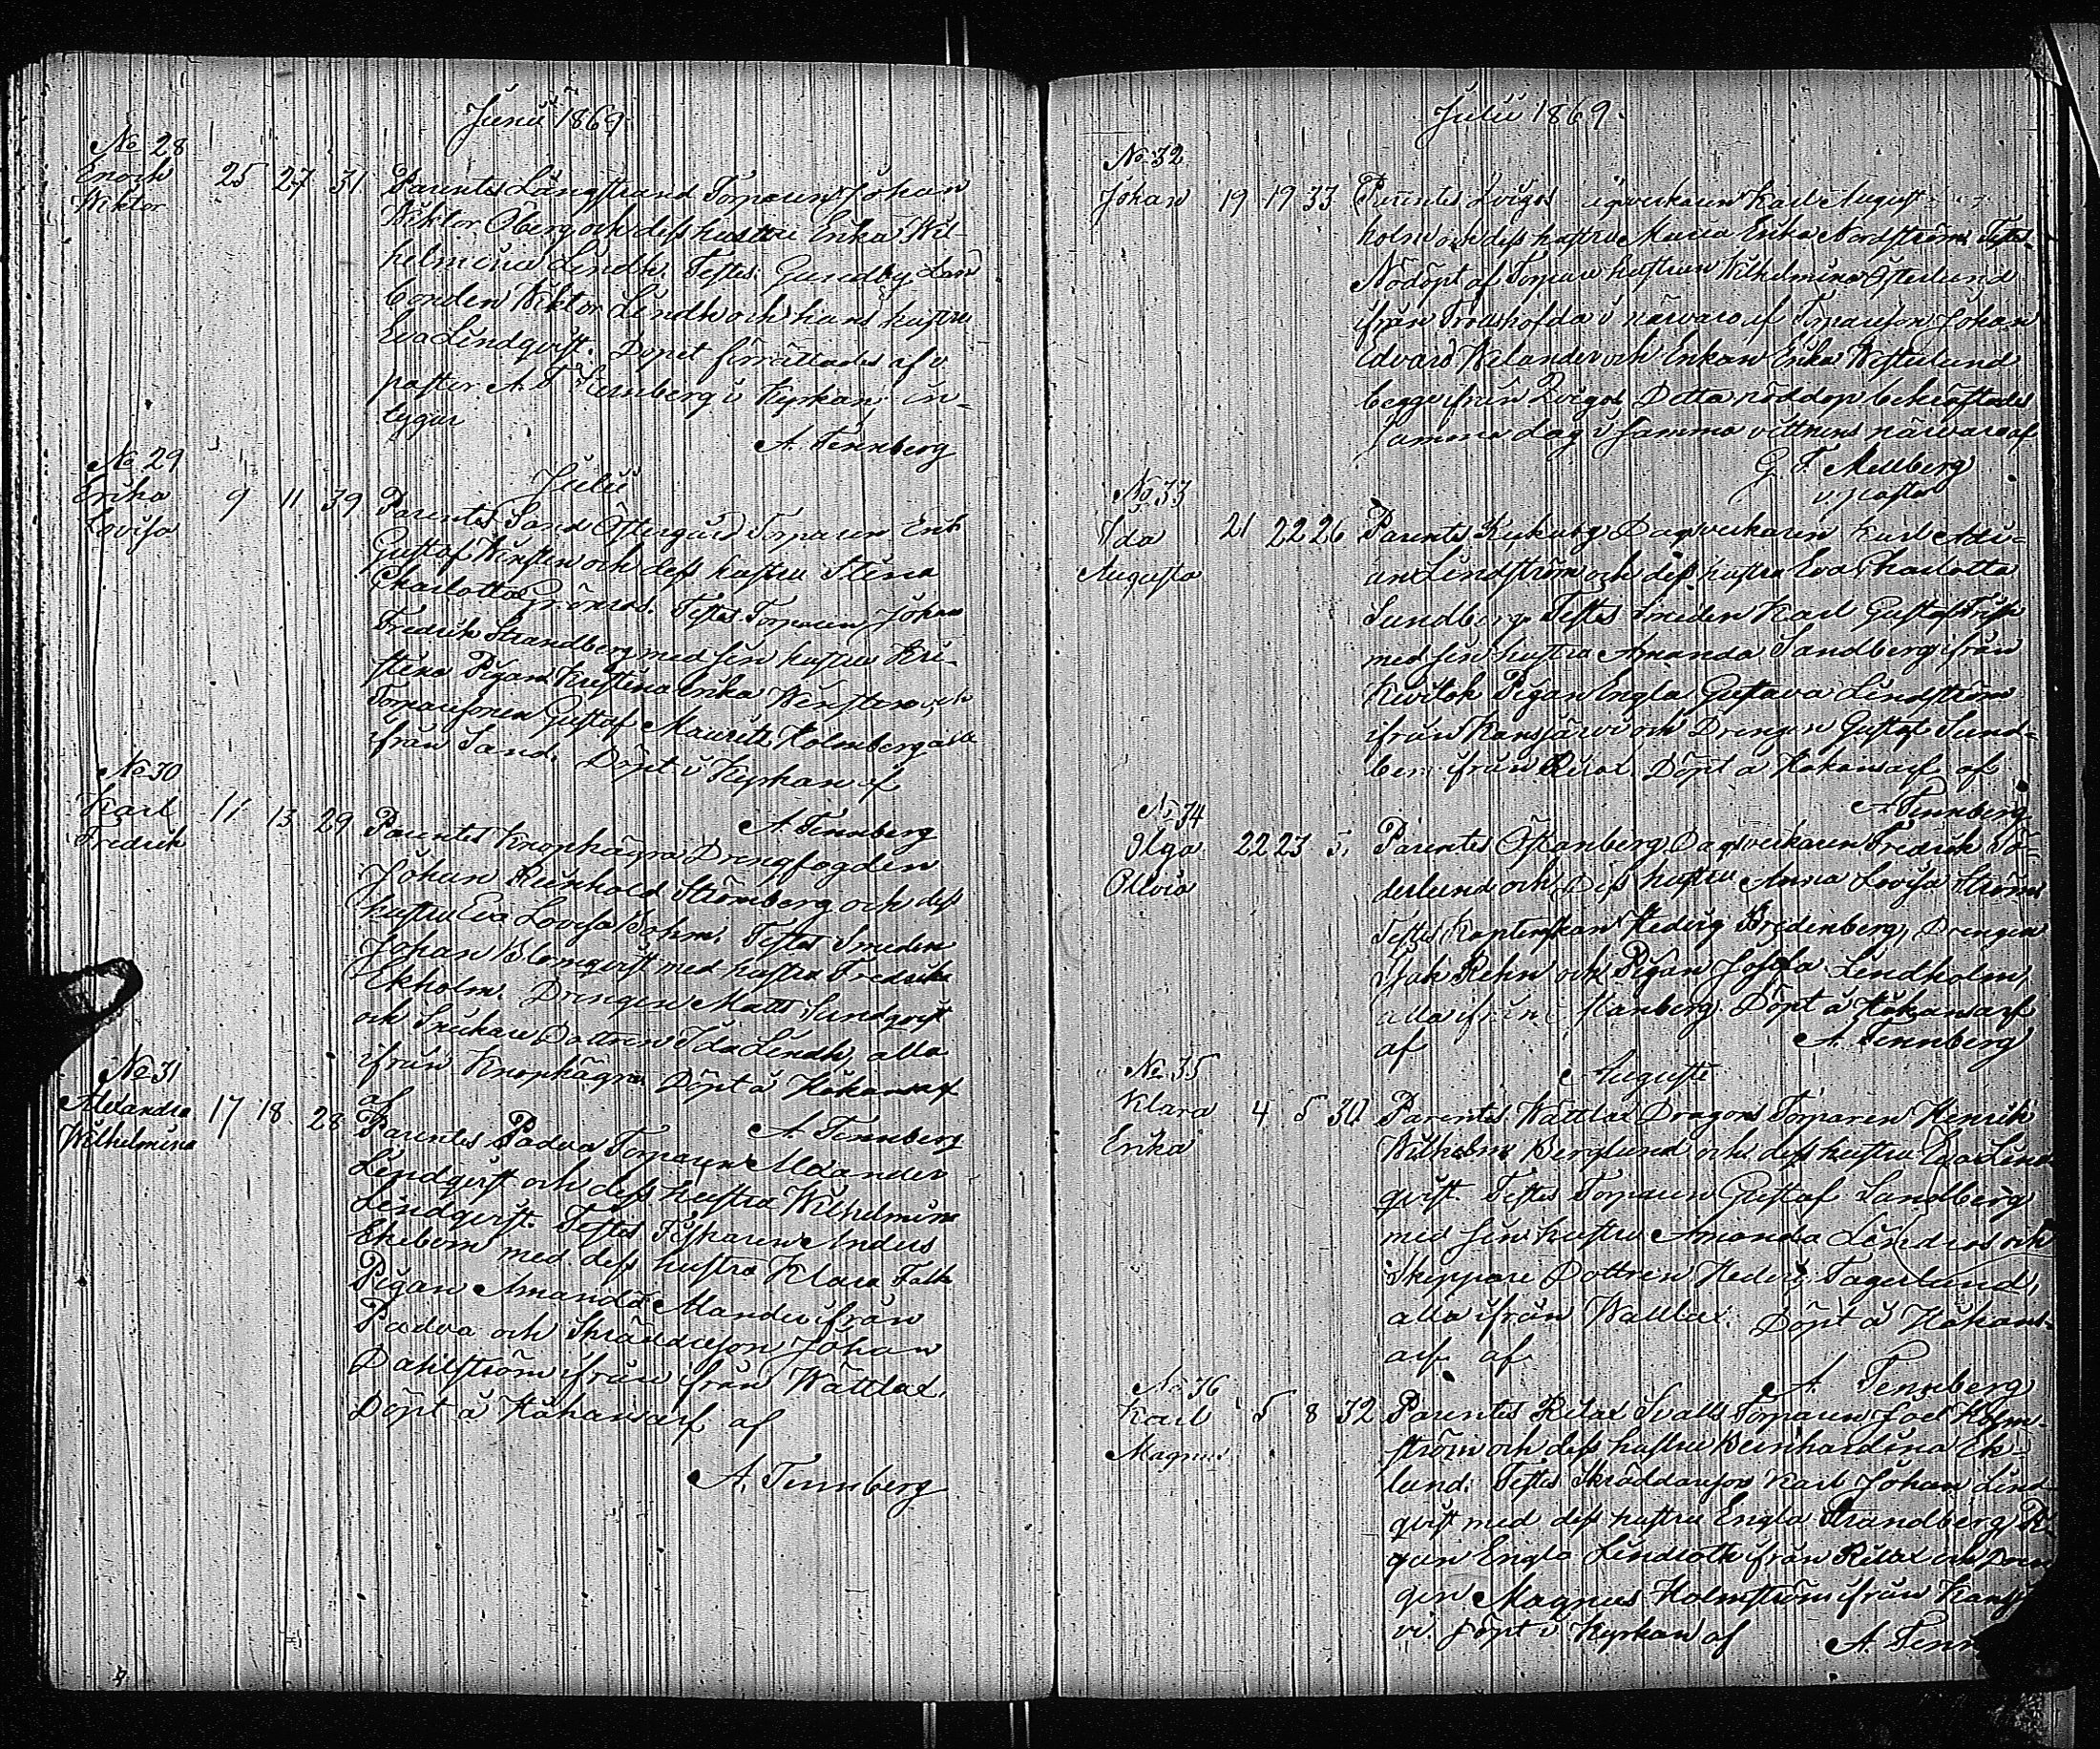 Junii 1869.
No 28
Enoch
Wiktor
25 27 31 Parentes Långstrand Torparen Johan
Wiktor Öberg och dess hustru Erika Wil-
helmina Lindh. Testes Gundby Lan
bonden Wiktor Lindh och hans hustru
Eva Lindqvist. Dopet förrättades af v
pastor A. F. Tennberg i Kyrkan in-
tygar
A. Tennberg
Julii
No 29
Erika
Lovisa
9 11 39 Parentes Sand Östergård Torparen Erik
Gustaf Wirsten och dess hustru Stina
Charlotta Grönros. Testes Torparen Johan
Fredrik Strandberg med sin hustru Kri-
stina Pigan Kristina Erika Wirsten och
Torparesonen Gustaf Mauritz Holmberg alla
ifrån Sand. Döpt i Kyrkan af
A. Tennberg
No 30
Karl
Fredrik
11 13 29 Parentes Knophägra Drengfogden
Johan Reinhold Strömberg och dess
hustru Eva Lovisa Bohm. Testes Smeden
Johan Blomqvist med hustru Fredrika
Ekholm. Drengen Matts Sundqvist
och Snickare Dottren Ida Lindh, alla
ifrån Knophägra Döpt å Håkansarf
af
A. Tennberg
No 31
Alexandra
Wilhelmina
17 18 28 Parentes Padva Torparen Alexander
Lindqvist och dess hustru Wilhelmina
Lindqvist. Testes Fiskaren Anders
Ekebom med dess hustru Klara Falk
Pigan Amanda Alander ifrån
Padva och Skräddareson Johan
Dahlström ifrån från Wättlax.
Döpt å Håkansarf af
A. Tennberg
Julii 1869.
No 32
Johan
19 19 33 Parentes Karl August
holm och dess hustru Maria Erika Nordström Testes
Nöddöpt af Torpare hustrun Wilhelmina Österlund
ifrån Trollshofda i närvaro af Torpareson Johan
Edvard Welander och Enkan Erika Westerlund
begge ifrån Detta nöddop bekräftades
samma dag i samma vittnens närvaro af
G. F. Mellberg
v pastor
No 33
Ida
Augusta
21 22 26 Parentes Dagsverkaren Karl Adri-
an Lindström och dess hustru Eva Charlotta
Sundberg. Testes Smeden Karl Gustaf
med sin hustru Amanda Sandberg ifrån
Pigan Engla Gustava Lindström
ifrån Kansjärvi och Drengen Gustaf Sund-
berg ifrån Rilax. Döpt å Håkansarf af
A. Tennberg
No 34
Olga
Olivia
22 23 Parentes Österby Dagsverkaren Fredrik Sö-
derlund och Dess hustru Anna Lovisa Ström
Testes Kaptenskan Hedvig Bredenberg, Drengen
Isak Rehn och Pigan Josefa Lindholm,
alla ifrån Döpt å Håkansarf
af
A. Tennberg
Augusti
No 35
Klara
Erika
4 5 30 Parentes Wättlax Dragons Torparen Henrik
Wilhelm Berglund och dess hustru Eva Lind
qvist. Testes Torparen Gustaf Sandberg
med sin hustru Amanda Lindros och
Skeppare Dottren Hedvig Fagerlund,
alla ifrån Wättlax. Döpt å Håkans-
arf af
A. Tennberg
No 36
Karl
Magnus
5 8 32 Parentes Rilax Svalls Torparen Joel Holm-
ström och dess hustru Bernhardina Ek-
lund. Testes Skräddareson Karl Johan Lind
qvist med dess hustru Engla Strandberg, Pi-
gan Engla Lindroth ifrån Rilax och Dren
gen Magnus Holmström ifrån Kansj
vi Döpt i Kyrkan af
A. Tenn